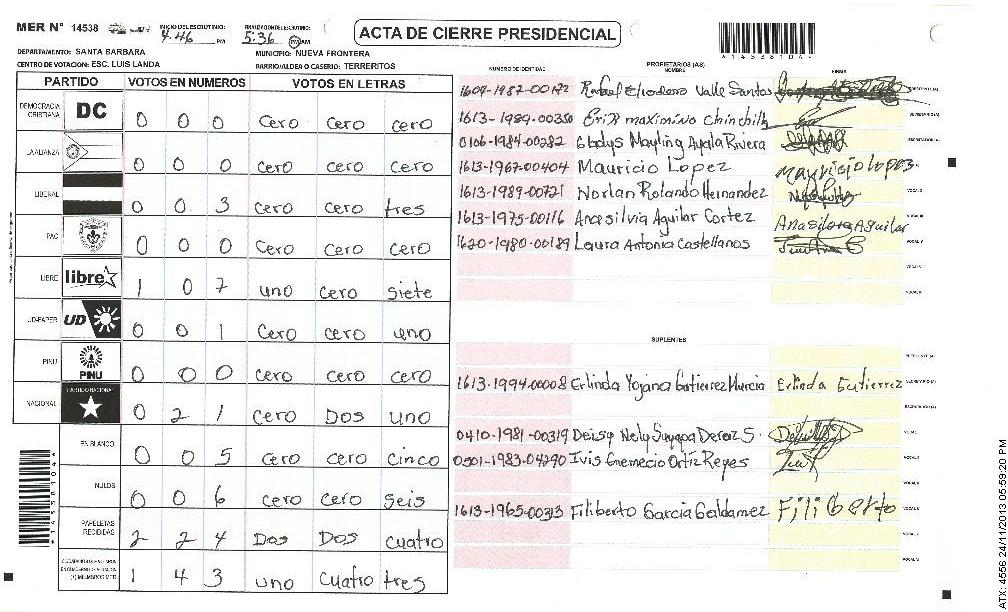 MER Nº 14538 INICIO DEL ESCRUTINIO: 4:46 PM FINALIZACION DEL ESCRUTINIO: 5:36 PM AM
ACTA DE CIERRE PRESIDENCIAL
*14538104*
DEPARTAMENTO: SANTA BARBARA MUNICIPIO: NUEVA FRONTERA
CENTRO DE VOTACION: ESC. LUIS LANDA BARRIO/ALDEA O CASERIO: TERRERITOS
PARTIDO VOTOS EN NUMEROS VOTOS EN LETRAS
DEMOCRACIA CRISTIANA DC 0 0 0 cero cero cero
LA ALIANZA 0 0 0 cero cero cero
LIBERAL 0 0 3 cero cero tres
PAC 0 0 0 cero cero cero
LIBRE libre 1 0 7 uno cero siete
UD-FAPER UD 0 0 1 cero cero uno
PINU PINU 0 0 0 cero cero cero
NACIONAL PARTIDO NACIONAL 0 2 1 cero Dos uno
EN BLANCO 0 0 5 cero cero cinco
NULOS 0 0 6 cero cero seis
PAPELETAS RECIBIDAS 2 2 4 Dos Dos cuatro
(+) MIEMBROS MER 1 4 3 uno cuatro tres
*14538104*
PROPIETARIOS (AS)
NUMERO DE IDENTIDAD NOMBRE FIRMA
Rafael Valle Santos PRESIDENTE (A)
1613-1989-00350 Erik maximino chinchilla SECRETARIO (A)
0106-1984-00282 Gladys Mayling Ayala Riviera ESCRUTADOR (A)
1613-1967-00404 Mauricio Lopez mauricio lopez
1613-1989-00721 Norlan Rolando Hernandez VOCAL II
1613-1975-00116 Anasilvia Aguilar Cortez Anasilvia Aguilar VOCAL III
1620-1980-00189 Laura Antonia Castellanos VOCAL IV
VOCAL V
VOCAL VI
SUPLENTES
PRESIDENTE (A)
1613-1994-00008 Erlinda Yojana Gutierrez Murcia Erlinda Gutierrez SECRETARIO (A)
ESCRUTADOR (A)
0410-1981-00319 Deisy S. VOCAL I
0501-1983-04290 Ivis Ortiz Reyes VOCAL II
VOCAL III
1613-1965-00313 Filiberto Garcia Galdamez Filiberto VOCAL IV
VOCAL V
VOCAL VI
ATX: 4556 24/11/2013 05:59:20 PM